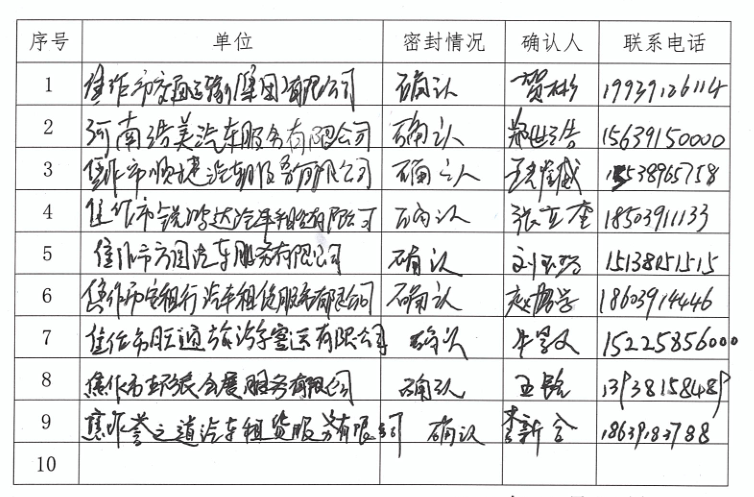 序号 单位 密封情况 确认人 联系电话
1 焦作市交通运输(集团)有限公司 确认 贺彬 19939126114
2 河南浩美汽车服务有限公司 确认 15639150000
3 焦作市顺捷汽车服务有限公司 确认 15538965758
4 焦作市锐鸿达汽车租赁有限公司 确认 张立奎 18503911133
5 焦作市方圆汽车服务有限公司 确认 15138051515
6 焦作市安租行汽车租赁服务有限公司 确认 18603914446
7 焦作市旺通旅游汽车客运有限公司 确认 15225856000
8 焦作市环张会展服务有限公司 确认 13938158489
9 焦作誉之道汽车租赁服务有限公司 确认 李新合 18639183788
10